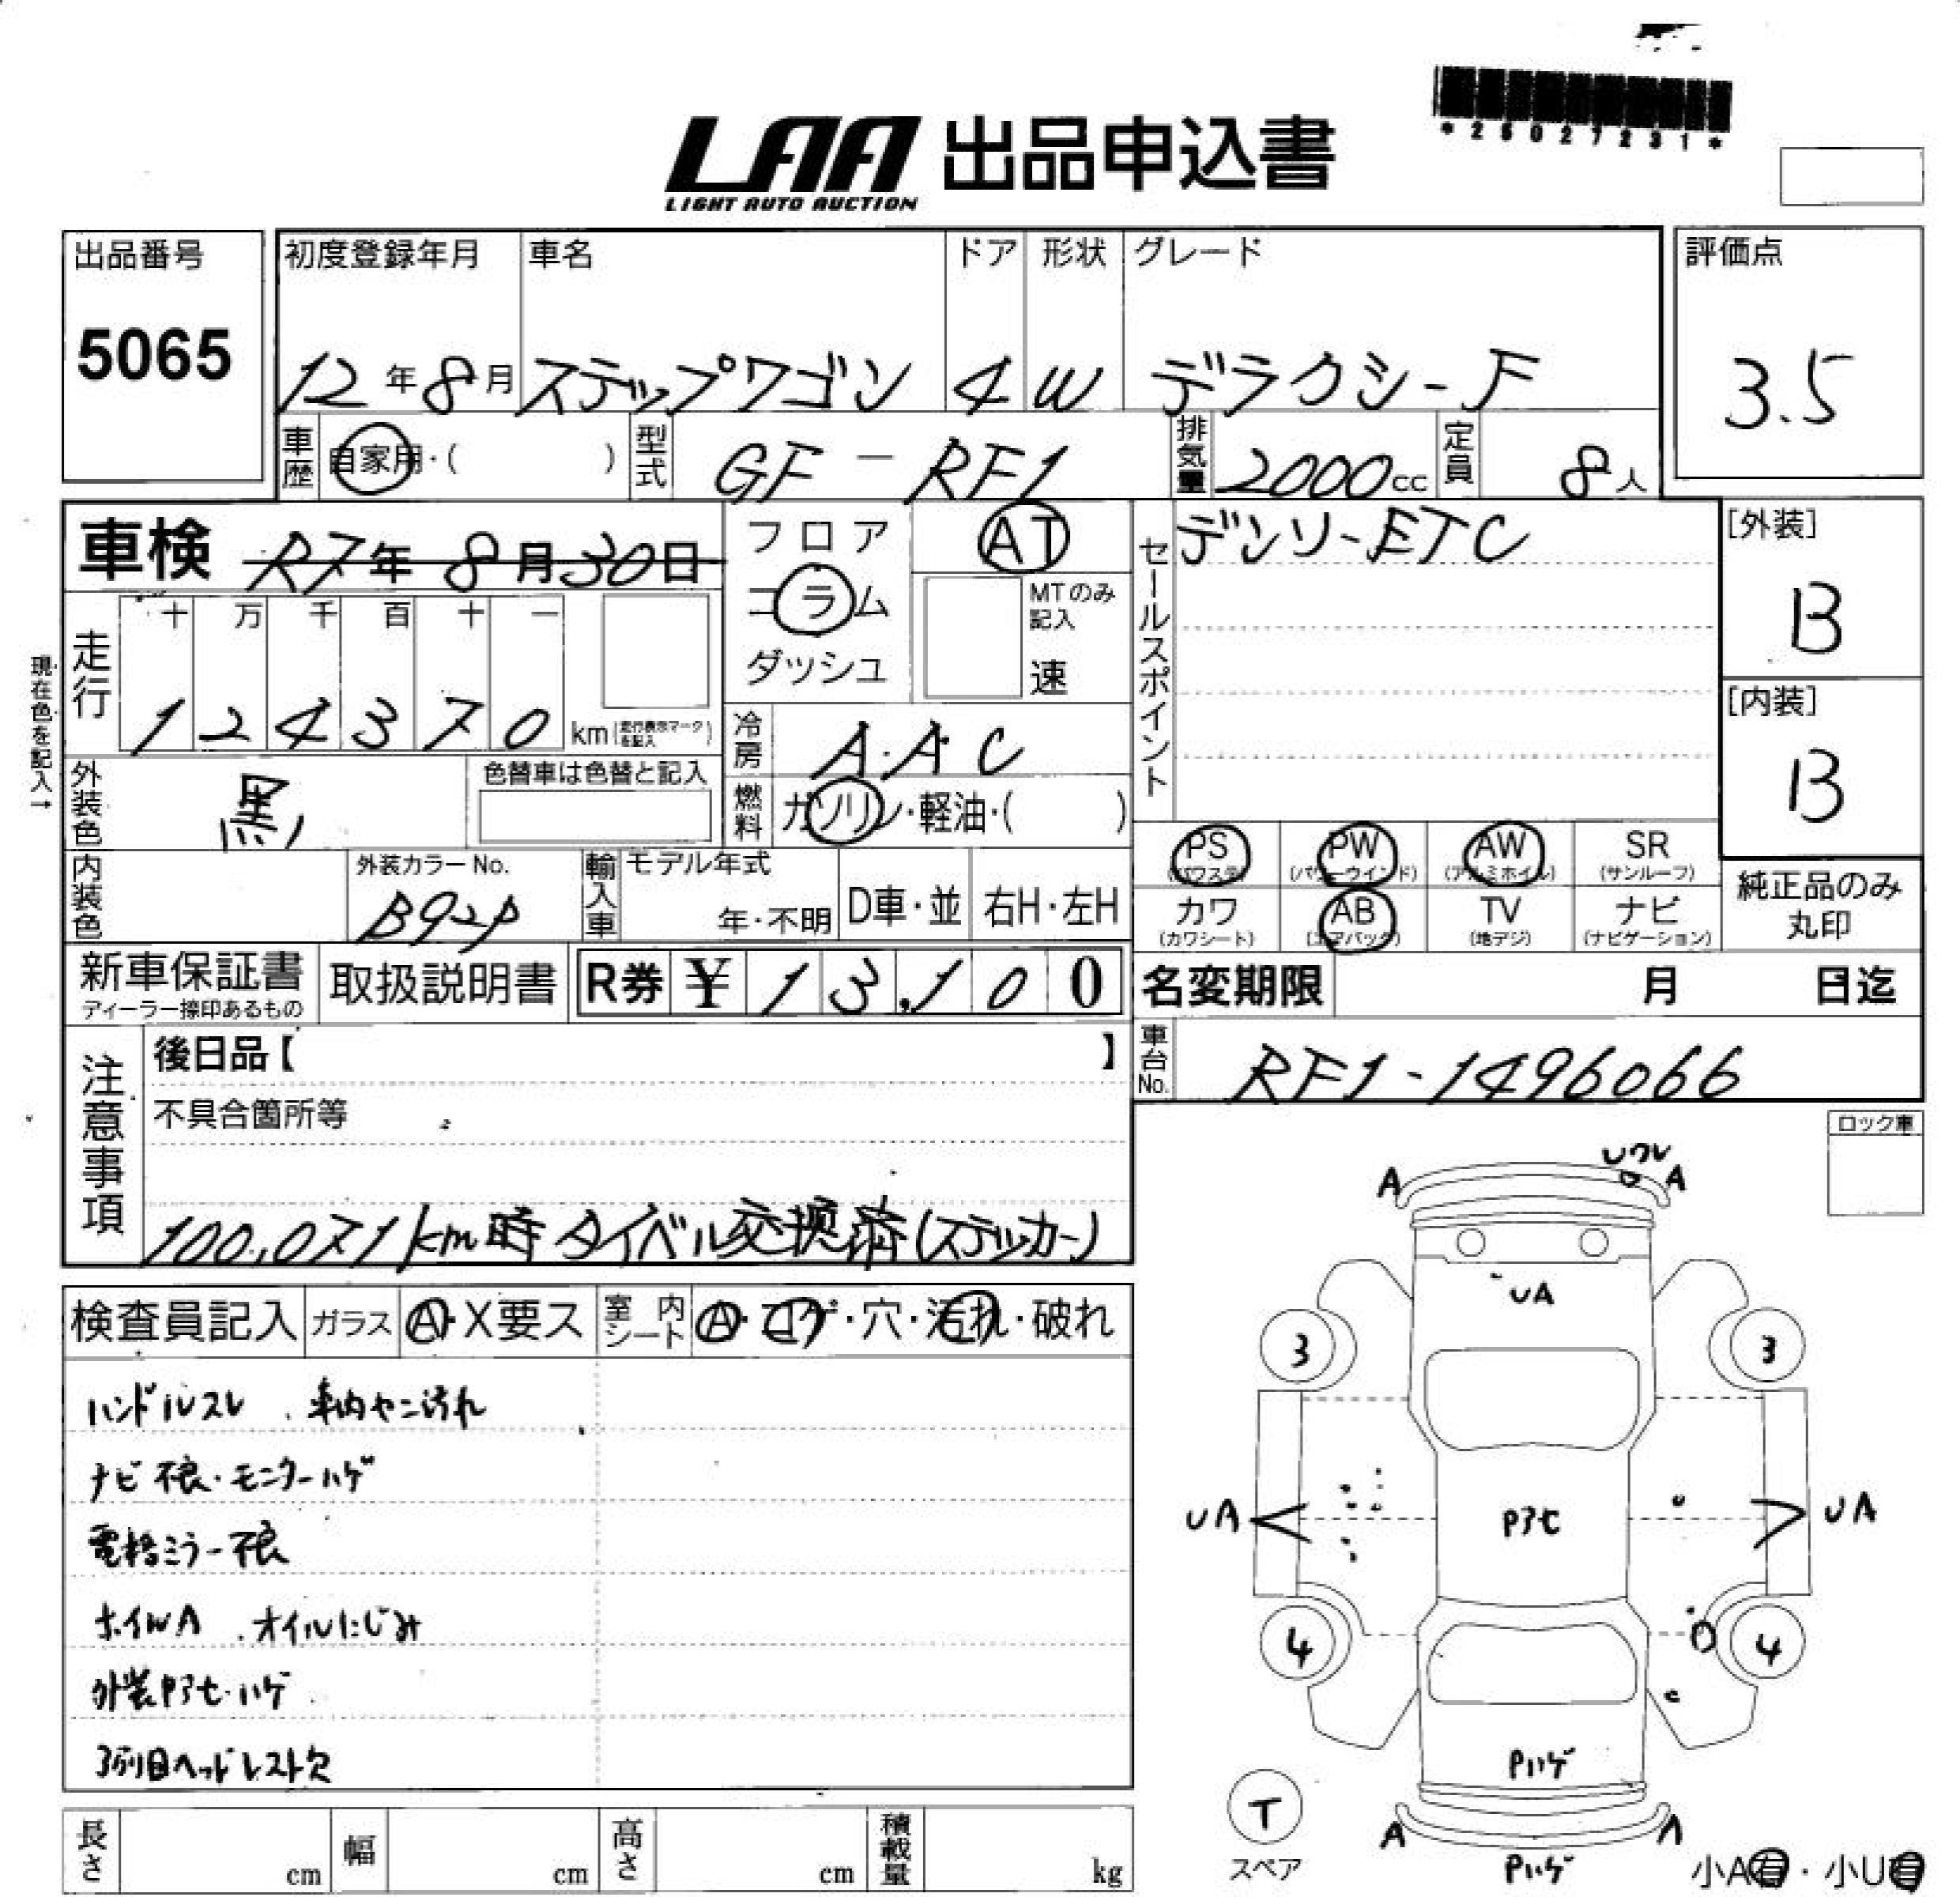 *25027231*
LAA 出品申込書
LIGHT AUTO AUCTION
出品番号 初度登録年月 車名 ドア 形状 グレード 評価点
5065 12年8月 ステップワゴン 4 W デラクシーF 3.5
車歴 自家用・( ) 型式 GF-RF1 排気量 2000cc 定員 8人
車検 R7年8月30日 フロア AT セールスポイント デンソーETC [外装]
コラム MTのみ記入 B
走行 十 万 千 百 十 一 ダッシュ 速
1 2 4 3 7 0 km (走行表示マークを記入) [内装]
現在色を記入→
冷房 A.A C B
外装色 黒 色替車は色替と記入 燃料 ガソリン・軽油・( )
PS (パワステ) PW (パワーウインド) AW (アルミホイル) SR (サンルーフ)
内装色 外装カラーNo. B92P 輸入車 モデル年式 年・不明 D車・並 右H・左H
カワ (カワシート) AB (エアバック) TV (地デジ) ナビ (ナビゲーション) 純正品のみ丸印
新車保証書 取扱説明書 R券 ¥ 13,100 名変期限 月 日迄
ディーラー捺印あるもの
注意事項 後日品【 】 車台No. RF1-1496066
不具合箇所等
ロック車
100,071km時タイベル交換済(ステッカー)
検査員記入 ガラス A・X要ス 室内シート A・コゲ・穴・汚れ・破れ
ハンドルスレ . 車内ヤニ汚れ
ナビ不良・モニターハゲ
電格ミラー不良
ホイルA . オイルにじみ
外装Pアセ・ハゲ
3列目ヘッドレスト欠
長さ cm 幅 cm 高さ cm 積載量 kg
A Uワレ A
UA
3 3
UA Pアセ UA
4 4
Pハゲ
T
スペア
A A
Pハゲ
小A有・小U有